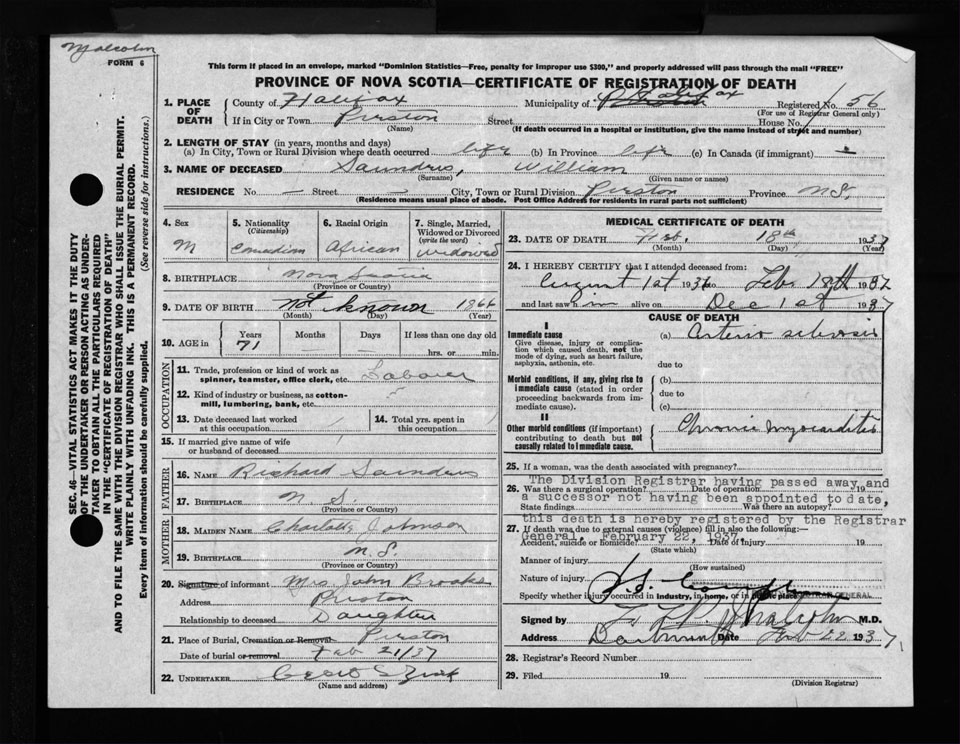 Malcolm
FORM 6
This form if placed in an envelope, marked "Dominion Statistics—Free, penalty for improper use $300," and properly addressed will pass through the mail "FREE"
PROVINCE OF NOVA SCOTIA—CERTIFICATE OF REGISTRATION OF DEATH
SEC. 46—VITAL STATISTICS ACT MAKES IT THE DUTY
OF THE UNDERTAKER OR PERSON ACTING AS UNDER-
TAKER TO OBTAIN ALL THE PARTICULARS REQUIRED
IN THE "CERTIFICATE OF REGISTRATION OF DEATH"
AND TO FILE THE SAME WITH THE DIVISION REGISTRAR WHO SHALL ISSUE THE BURIAL PERMIT.
WRITE PLAINLY WITH UNFADING INK. THIS IS A PERMANENT RECORD.
Every item of information should be carefully supplied. (See reverse side for instructions.)
1. PLACE OF DEATH County of Halifax Municipality of Halifax Registered No. 56
(For use of Registrar General only)
If in City or Town Preston Street House No.
(Name) (If death occurred in a hospital or institution, give the name instead of street and number)
2. LENGTH OF STAY (in years, months and days)
(a) In City, Town or Rural Division where death occurred life (b) In Province life (c) In Canada (if immigrant) —
3. NAME OF DECEASED Saunders, William
(Surname) (Given name or names)
RESIDENCE No — Street — City, Town or Rural Division Preston Province N.S.
(Residence means usual place of abode. Post Office Address for residents in rural parts not sufficient)
4. Sex M
5. Nationality (Citizenship) Canadian
6. Racial Origin African
7. Single, Married, Widowed or Divorced (write the word) Widowed
8. BIRTHPLACE Nova Scotia
(Province or Country)
9. DATE OF BIRTH Not known 1866
(Month) (Day) (Year)
10. AGE in Years Months Days If less than one day old
71 — — hrs. or min.
OCCUPATION
11. Trade, profession or kind of work as spinner, teamster, office clerk, etc. Laborer
12. Kind of industry or business, as cotton-mill, lumbering, bank, etc.
13. Date deceased last worked at this occupation
14. Total yrs. spent in this occupation
15. If married give name of wife or husband of deceased
FATHER
16. NAME Richard Saunders
17. BIRTHPLACE N.S.
(Province or Country)
MOTHER
18. MAIDEN NAME Charlotte Johnson
19. BIRTHPLACE N.S.
(Province or Country)
20. Signature of informant Mrs John Brooks
Address Preston
Relationship to deceased Daughter
21. Place of Burial, Cremation or Removal Preston
Date of burial or removal Feb 21/37
22. UNDERTAKER
(Name and address)
MEDICAL CERTIFICATE OF DEATH
23. DATE OF DEATH Feb. 18th 1937
(Month) (Day) (Year)
24. I HEREBY CERTIFY that I attended deceased from:
August 1st 1936 to Feb. 18th 1937
and last saw h im alive on Dec 1st 1937
CAUSE OF DEATH
I
Immediate cause (a) Arterio sclerosis
Give disease, injury or complication which caused death, not the mode of dying, such as heart failure, asphyxia, asthenia, etc.
due to
Morbid conditions, if any, giving rise to immediate cause (stated in order proceeding backwards from immediate cause). (b)
due to
(c)
II
Other morbid conditions (if important) contributing to death but not causally related to immediate cause. Chronic myocarditis
25. If a woman, was the death associated with pregnancy?
The Division Registrar having passed away and
26. Was there a surgical operation? Date of operation 19
a successor not having been appointed to date,
State findings Was there an autopsy?
this death is hereby registered by the Registrar
27. If death was due to external causes (violence) fill in also the following:—
General, February 22, 1937.
Accident, suicide or homicide? Date of injury 19
(State which)
Manner of injury
(How sustained)
Nature of injury
Specify whether injury occurred in industry, in home, or in public place
REGISTRAR GENERAL
Signed by M.D.
Address Dartmouth Date Feb 22 1937
28. Registrar's Record Number
29. Filed 19
(Division Registrar)